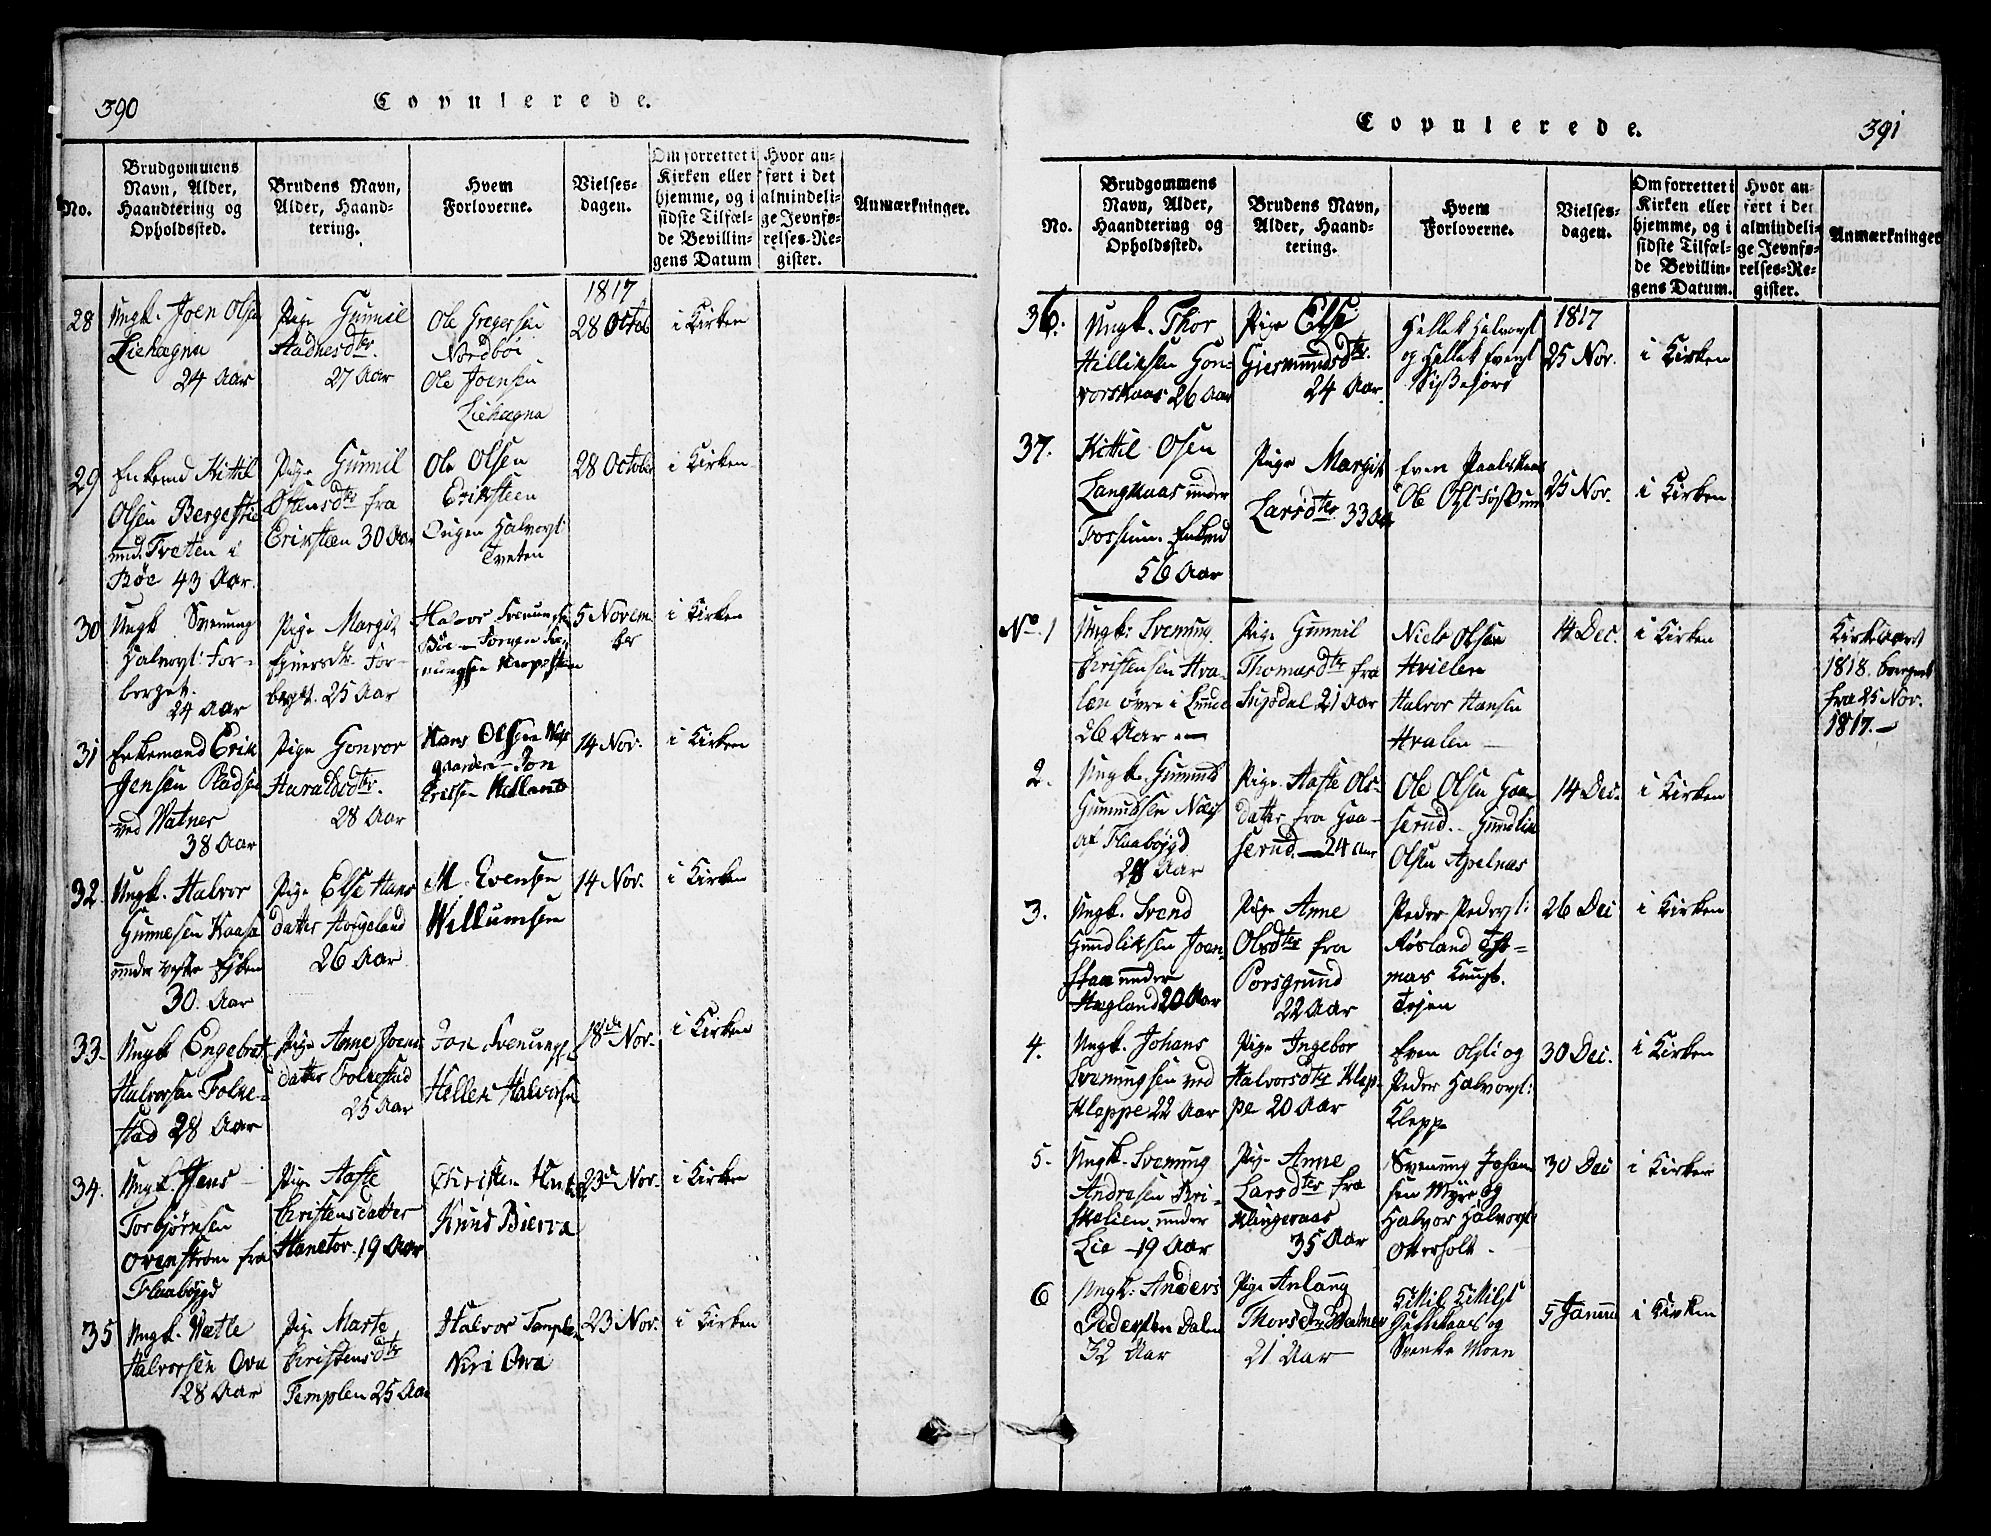 390
Copulerede.
No.
Brudgommens
Navn, Alder,
Haandtering og
Opholdssted.
Brudens Navn,
Alder, Haand-
tering.
Hvem
Forloverne.
Vielses-
dagen.
Om forrettet i
Kirken eller
hjemme, og i
sidste Tilfæl-
de Bevillin-
gens Datum
Hvor an-
ført i det
almindeli-
ge Jevnfø-
relses-Re-
gister.
Anmærkninger.
28
Ungk. Joen Olsen
Liehægna
24 Aar
Pige Gunnil
Aadnesdtr.
27 Aar
Ole Gregersen
Nordbøi
Ole Joensen
Liehægna
1817
28 Octob
i Kirken
29
Enkemd Kittil
Olsen Bergestie
und. Tveten i
Bøe 43 Aar.
Pige Gunnil
Østensdtr fra
Eriksteen 30 Aar
Ole Olsen
Eriksteen
Halvors:
Tveten
28 October
i Kirken
30
Ungk Svenung
Halvors: For-
berget.
24 Aar
Pige Margit
For-
berget. 25 Aar
Halvor Svenungsen
Bøe - Torgen
5 Novem
ber
i Kirken
31
Enkemand Erik
Jensen Pladsen
ved Vatner
38 Aar
Pige Gonvor
Haraldsdtr.
28 Aar
Hans Olsen
gaarden - Jon
14 Nov.
i Kirken
32.
Ungk. Halvor
Gunnesen Kaasa
under
30. Aar
Pige Else Hans
datter Haugeland
26 Aar
M. Evensen
Willumsen
14 Nov.
i Kirken
33.
Ungk Engebret
Halvorsen Folke-
stad 28 Aar
Pige Anne Joens
datter Folkestad
25 Aar
Jon Svenungs:
Hellek Halvorsen
18de Nov.
i Kirken
34.
Ungk. Jens
Torbjørnsen
Ovenstrøm fra
Flaabøygd
Pige Aaste
Christensdatter
Hanetor. 19 Aar
Christen
Knud Bierva
23d Nov.
i Kirken
35
Ungk. Vetle
Halvorsen Ova
28 Aar
Pige Marte
Christensdtr
Templen 25 Aar
Halvor Templen
Niri Ova
23 Nov.
i Kirken
391
Copulerede.
No.
Brudgommens
Navn, Alder,
Haandtering og
Opholdssted.
Brudens Navn,
Alder, Haand-
tering.
Hvem
Forloverne.
Vielses-
dagen.
Om forrettet i
Kirken eller
hjemme, og i
sidste Tilfæl-
de Bevillin-
gens Datum.
Hvor an-
ført i det
almindeli-
ge Jevnfø-
relses-Re-
gister.
Anmærkninger
36.
Ungk. Thor
Helliksen Gon-
vorskaas 26 Aar
Pige Else
Giermundsdtr.
24 Aar.
Hellek Halvors:
og Hellek
1817
25 Nov.
i Kirken
37.
Kittil Olsen
Langkaas under
Fossum. Enkemd
56 Aar
Pige Margit
Larsdtr 33 Aar
Even
Ole
25 Nov.
i Kirken
No. 1
Ungk: Svenung
Christensen Hva-
len øvre i Lunde
26 Aar
Pige Gunnil
Thomasdtr fra
21 Aar
Niels Olsen
Hvielen
Halvor Hansen
Hvalen
14 Dec.
i Kirken
Kirkeaaret
1818. beregnet
fra 25 Nov.
1817.
2.
Ungk. Gunnuld
Gunnuldsen Næs
af Flaabøygd
28 Aar
Pige Aaste Ols-
datter fra Gaa-
serud. 24 Aar
Ole Olsen Gaa-
serud. Gundlik
Olsen Apelnæs
14 Dec.
i Kirken
3.
Ungk. Svend
Gundliksen Joen-
under
Hægland 20 Aar
Pige Anne
Olsdtr fra
Porsgrund
22 Aar
Peder Peders:
Røsland
mas
26 Dec
i Kirken
4.
Ungk. Johans
Svenungsen ved
Kleppe 22 Aar
Pige Ingebor
Halvorsdtr Klep-
pe 20 Aar
Even Olsen og
Peder Halvors:
Klepp
30 Dec.
i Kirken
5.
Ungk. Svenung
Andresen
under
Lie 19 Aar
Pige Anne
Larsdtr fra
Klingeraas
35 Aar
Svenung Johan
sen Myre og
Halvor Halvors:
Otterholt
30 Dec
i Kirken
6
Ungk: Anders
Pedersen Dalen
32 Aar
Pige Anlaug
Thorsdtr Vatner
21 Aar
Kittil Kittils:
og
Svenke Moen
5 Januar
i Kirken